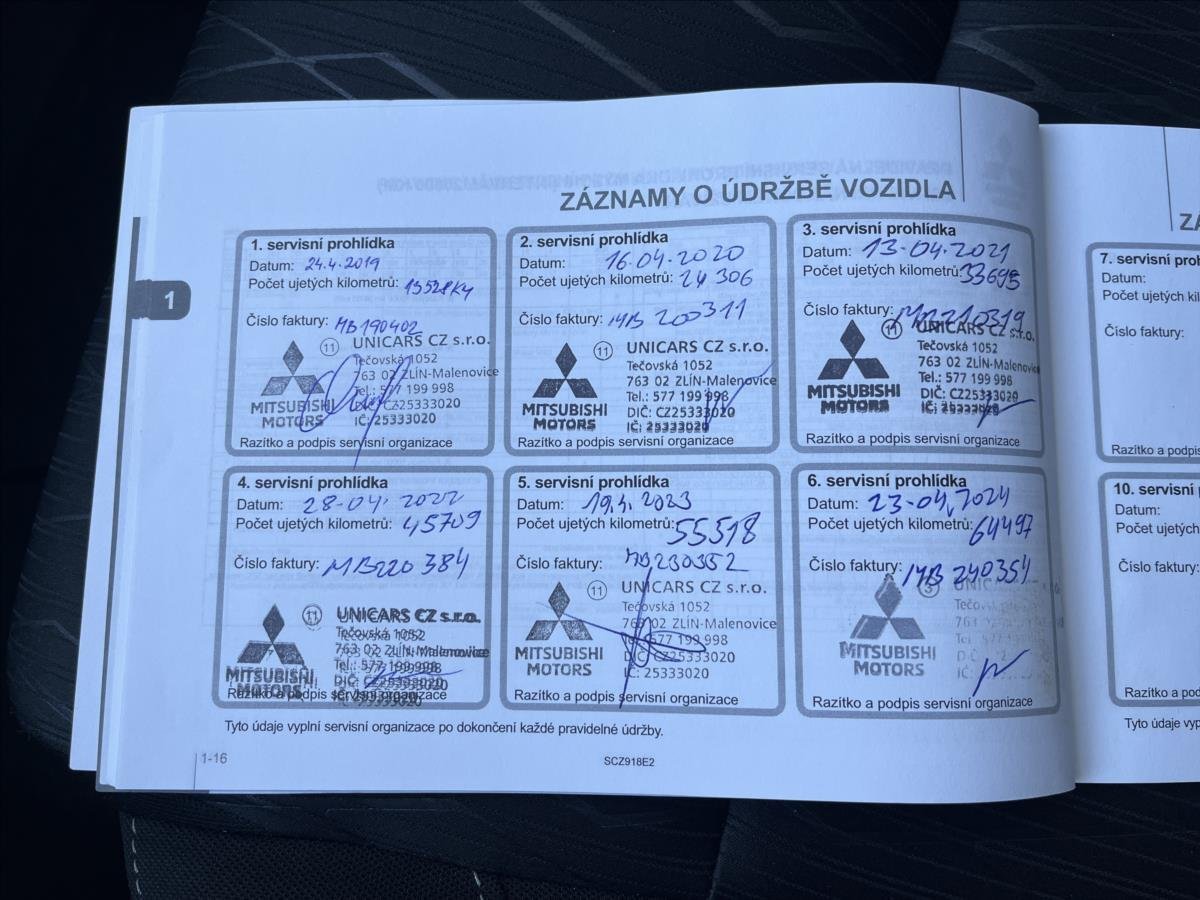 ZÁZNAMY O ÚDRŽBĚ VOZIDLA
1
1. servisní prohlídka
Datum: 24.4.2019
Počet ujetých kilometrů: 13528 KM
Číslo faktury: MB190402
11 UNICARS CZ s.r.o.
Tečovská 1052
763 02 ZLÍN-Malenovice
Tel.: 577 199 998
DIČ: CZ25333020
IČ: 25333020
MITSUBISHI
MOTORS
Razítko a podpis servisní organizace
2. servisní prohlídka
Datum: 16.04.2020
Počet ujetých kilometrů: 24 306
Číslo faktury: MB 200311
11 UNICARS CZ s.r.o.
Tečovská 1052
763 02 ZLÍN-Malenovice
Tel.: 577 199 998
DIČ: CZ25333020
IČ: 25333020
MITSUBISHI
MOTORS
Razítko a podpis servisní organizace
3. servisní prohlídka
Datum: 13-04.2021
Počet ujetých kilometrů: 33695
Číslo faktury: MB210319
11 UNICARS CZ s.r.o.
Tečovská 1052
763 02 ZLÍN-Malenovice
Tel.: 577 199 998
DIČ: CZ25333020
IČ: 25333020
MITSUBISHI
MOTORS
Razítko a podpis servisní organizace
4. servisní prohlídka
Datum: 28-04.2022
Počet ujetých kilometrů: 45709
Číslo faktury: MB220 384
11 UNICARS CZ s.r.o.
Tečovská 1052
763 02 ZLÍN-Malenovice
Tel.: 577 199 998
DIČ: CZ25333020
IČ: 25333020
MITSUBISHI
MOTORS
Razítko a podpis servisní organizace
5. servisní prohlídka
Datum: 19.4.2023
Počet ujetých kilometrů: 55518
Číslo faktury: MB230352
11 UNICARS CZ s.r.o.
Tečovská 1052
763 02 ZLÍN-Malenovice
Tel.: 577 199 998
DIČ: CZ25333020
IČ: 25333020
MITSUBISHI
MOTORS
Razítko a podpis servisní organizace
6. servisní prohlídka
Datum: 23-04.2024
Počet ujetých kilometrů: 64497
Číslo faktury: MB 240354
3 UNIC
Tečo
763 02
Tel
DIČ
IČ:
MITSUBISHI
MOTORS
Razítko a podpis servisní organizace
Tyto údaje vyplní servisní organizace po dokončení každé pravidelné údržby.
1-16
SCZ918E2
ZÁ
7. servisní proh
Datum:
Počet ujetých kil
Číslo faktury:
Razítko a podpis
10. servisní
Datum:
Počet ujetých
Číslo faktury:
Razítko a podp
Tyto údaje vy